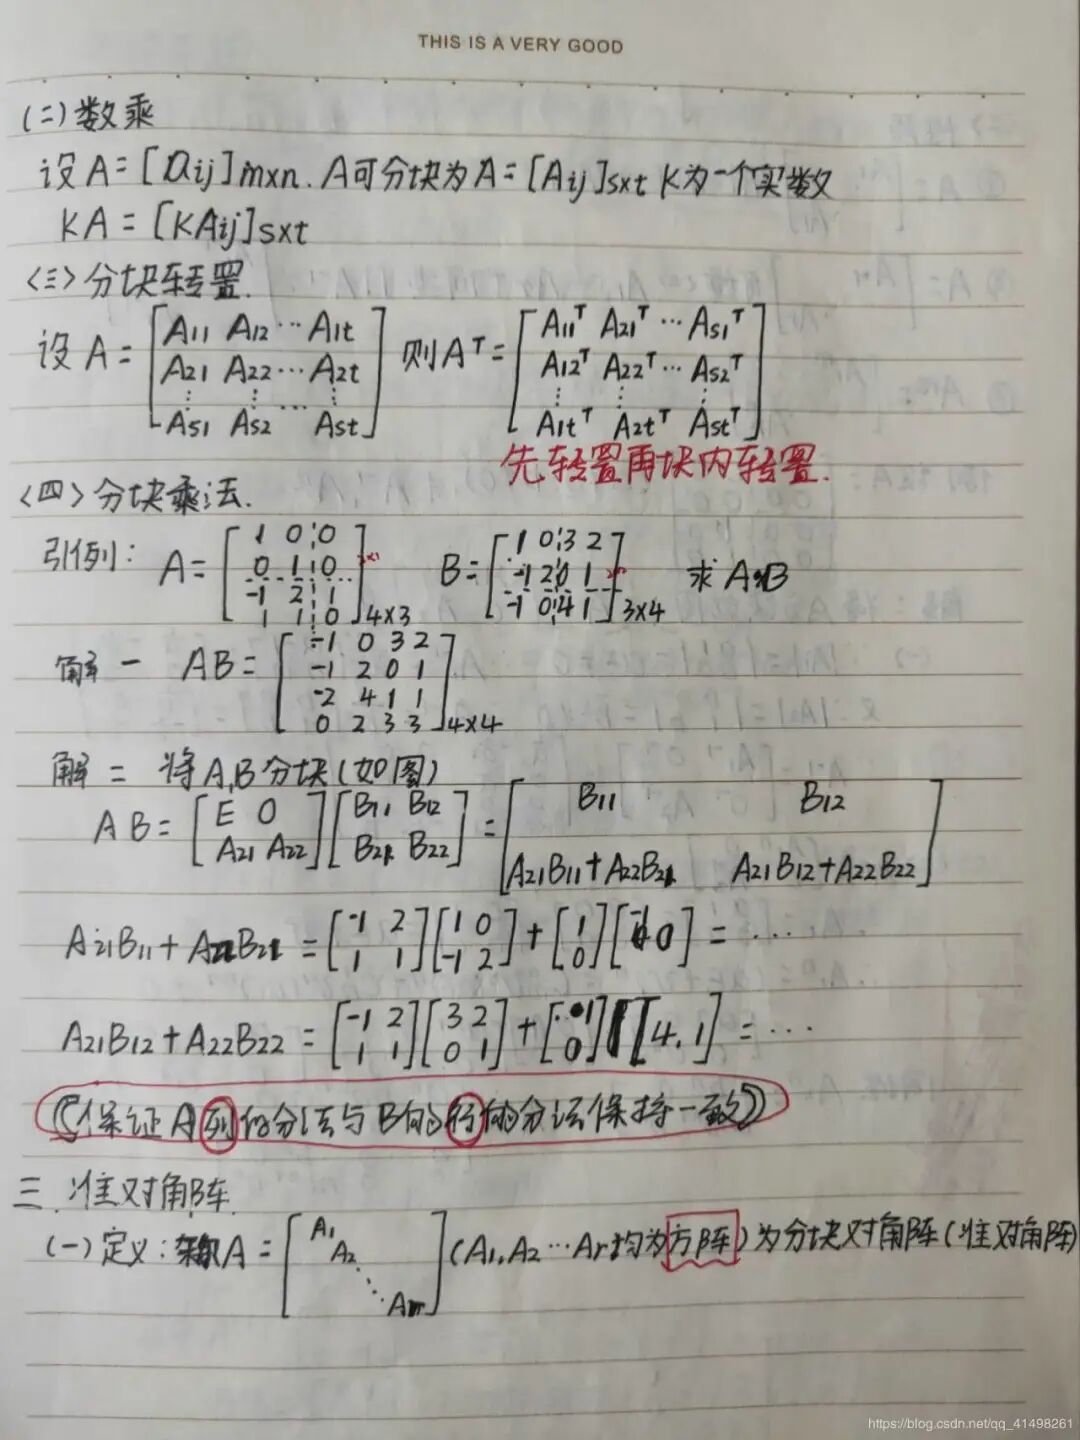 THIS IS A VERY GOOD
(二) 数乘
设 A = [aij]m×n. A可分块为 A = [Aij]s×t K为一个实数
KA = [KAij]s×t
<三> 分块转置.
设 A = [A11 A12 ··· A1t 则 A^T = [A11^T A21^T ··· AS1^T
A21 A22 ··· A2t A12^T A22^T ··· AS2^T
⋮ ⋮ ··· ⋮ ⋮ ⋮ ⋮
AS1 AS2 ASt] A1t^T A2t^T ASt^T]
先转置再块内转置.
<四> 分块乘法.
引例: A = [1 0 0 B = [1 0 3 2 求 A·B
0 1 0 -1 2 0 1
-1 2 1 -1 0 4 1]3×4
1 1 0]4×3
解一 AB = [-1 0 3 2
-1 2 0 1
-2 4 1 1
0 2 3 3]4×4
解二 将A,B分块(如图)
AB = [E O [B11 B12 = [B11 B12
A21 A22] B21 B22] A21B11+A22B21 A21B12+A22B22]
A21B11+A22B21 = [-1 2 [1 0 + [1 [-1 0] = ···
1 1] -1 2] 0]
A21B12+A22B22 = [-1 2 [3 2 + [1 [4, 1] = ···
1 1] 0 1] 0]
((保证A列的分法与B的行的分法保持一致))
三. 准对角阵.
(一) 定义: 称 A = [A1 (A1, A2 ··· Ar均为方阵) 为分块对角阵(准对角阵)
A2
⋱
Ar]
https://blog.csdn.net/qq_41498261